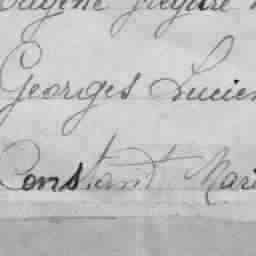 Eugène Grégoire
Georges Lucien
Constant Mari